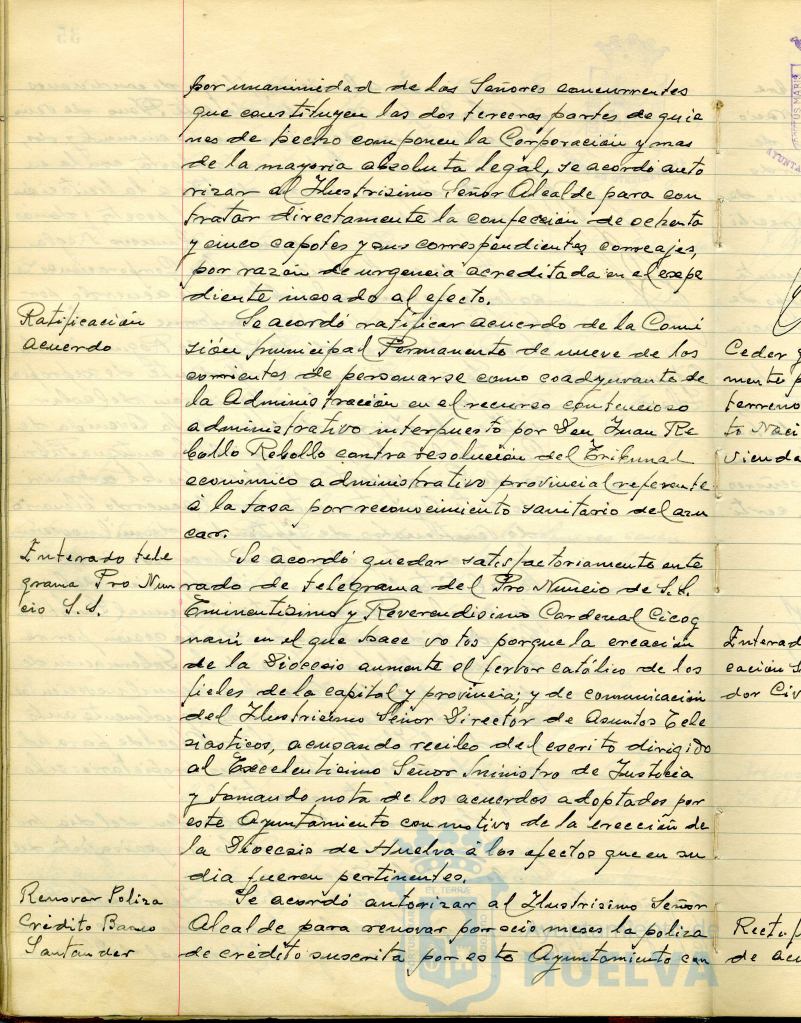 por unanimidad de los Señores concurrentes
que constituyen las dos terceras partes de quie
nes de hecho componen la Corporación y mas
de la mayoría absoluta legal, se acordó auto
rizar al Ilustrisimo Señor Alcalde para con
tratar directamente la confección de ochenta
y cinco capotes y sus correspondientes correajes,
por razón de urgencia acreditada en el expe
diente incoado al efecto.
Ratificación
acuerdo
Se acordó ratificar acuerdo de la Comi
sión municipal Permanente de nueve de los
corrientes de personarse como coadyuvante de
la Administración en el recurso contencioso
administrativo interpuesto por Don Juan Re
bollo Rebollo contra resolución del Tribunal
económico administrativo provincial referente
á la tasa por reconocimiento sanitario del azu
car.
Enterado tele
grama Pro Nun
cio S.S.
Se acordó quedar satisfactoriamente ente
rado de telegrama del Pro Nuncio de S.S.
Eminentisimo y Reverendisimo Cardenal Cicog
nani en el que hace votos porque la creación
de la Diocesis aumente el fervor católico de los
fieles de la capital y provincia; y de comunicación
del Ilustrisimo Señor Director de Asuntos Ecle
siasticos, acusando recibo del escrito dirigido
al Excelentisimo Señor Ministro de Justicia
y tomando nota de los acuerdos adoptados por
este Ayuntamiento con motivo de la erección de
la Diocesis de Huelva á los efectos que en su
dia fueren pertinentes.
Renovar Poliza
Crédito Banco
Santander
Se acordó autorizar al Ilustrisimo Señor
Alcalde para renovar por seis meses la poliza
de crédito suscrita por este Ayuntamiento con
HUELVA
Ceder
terreno
to Naci
vienda
Enterad
cación
dor Civ
de acu